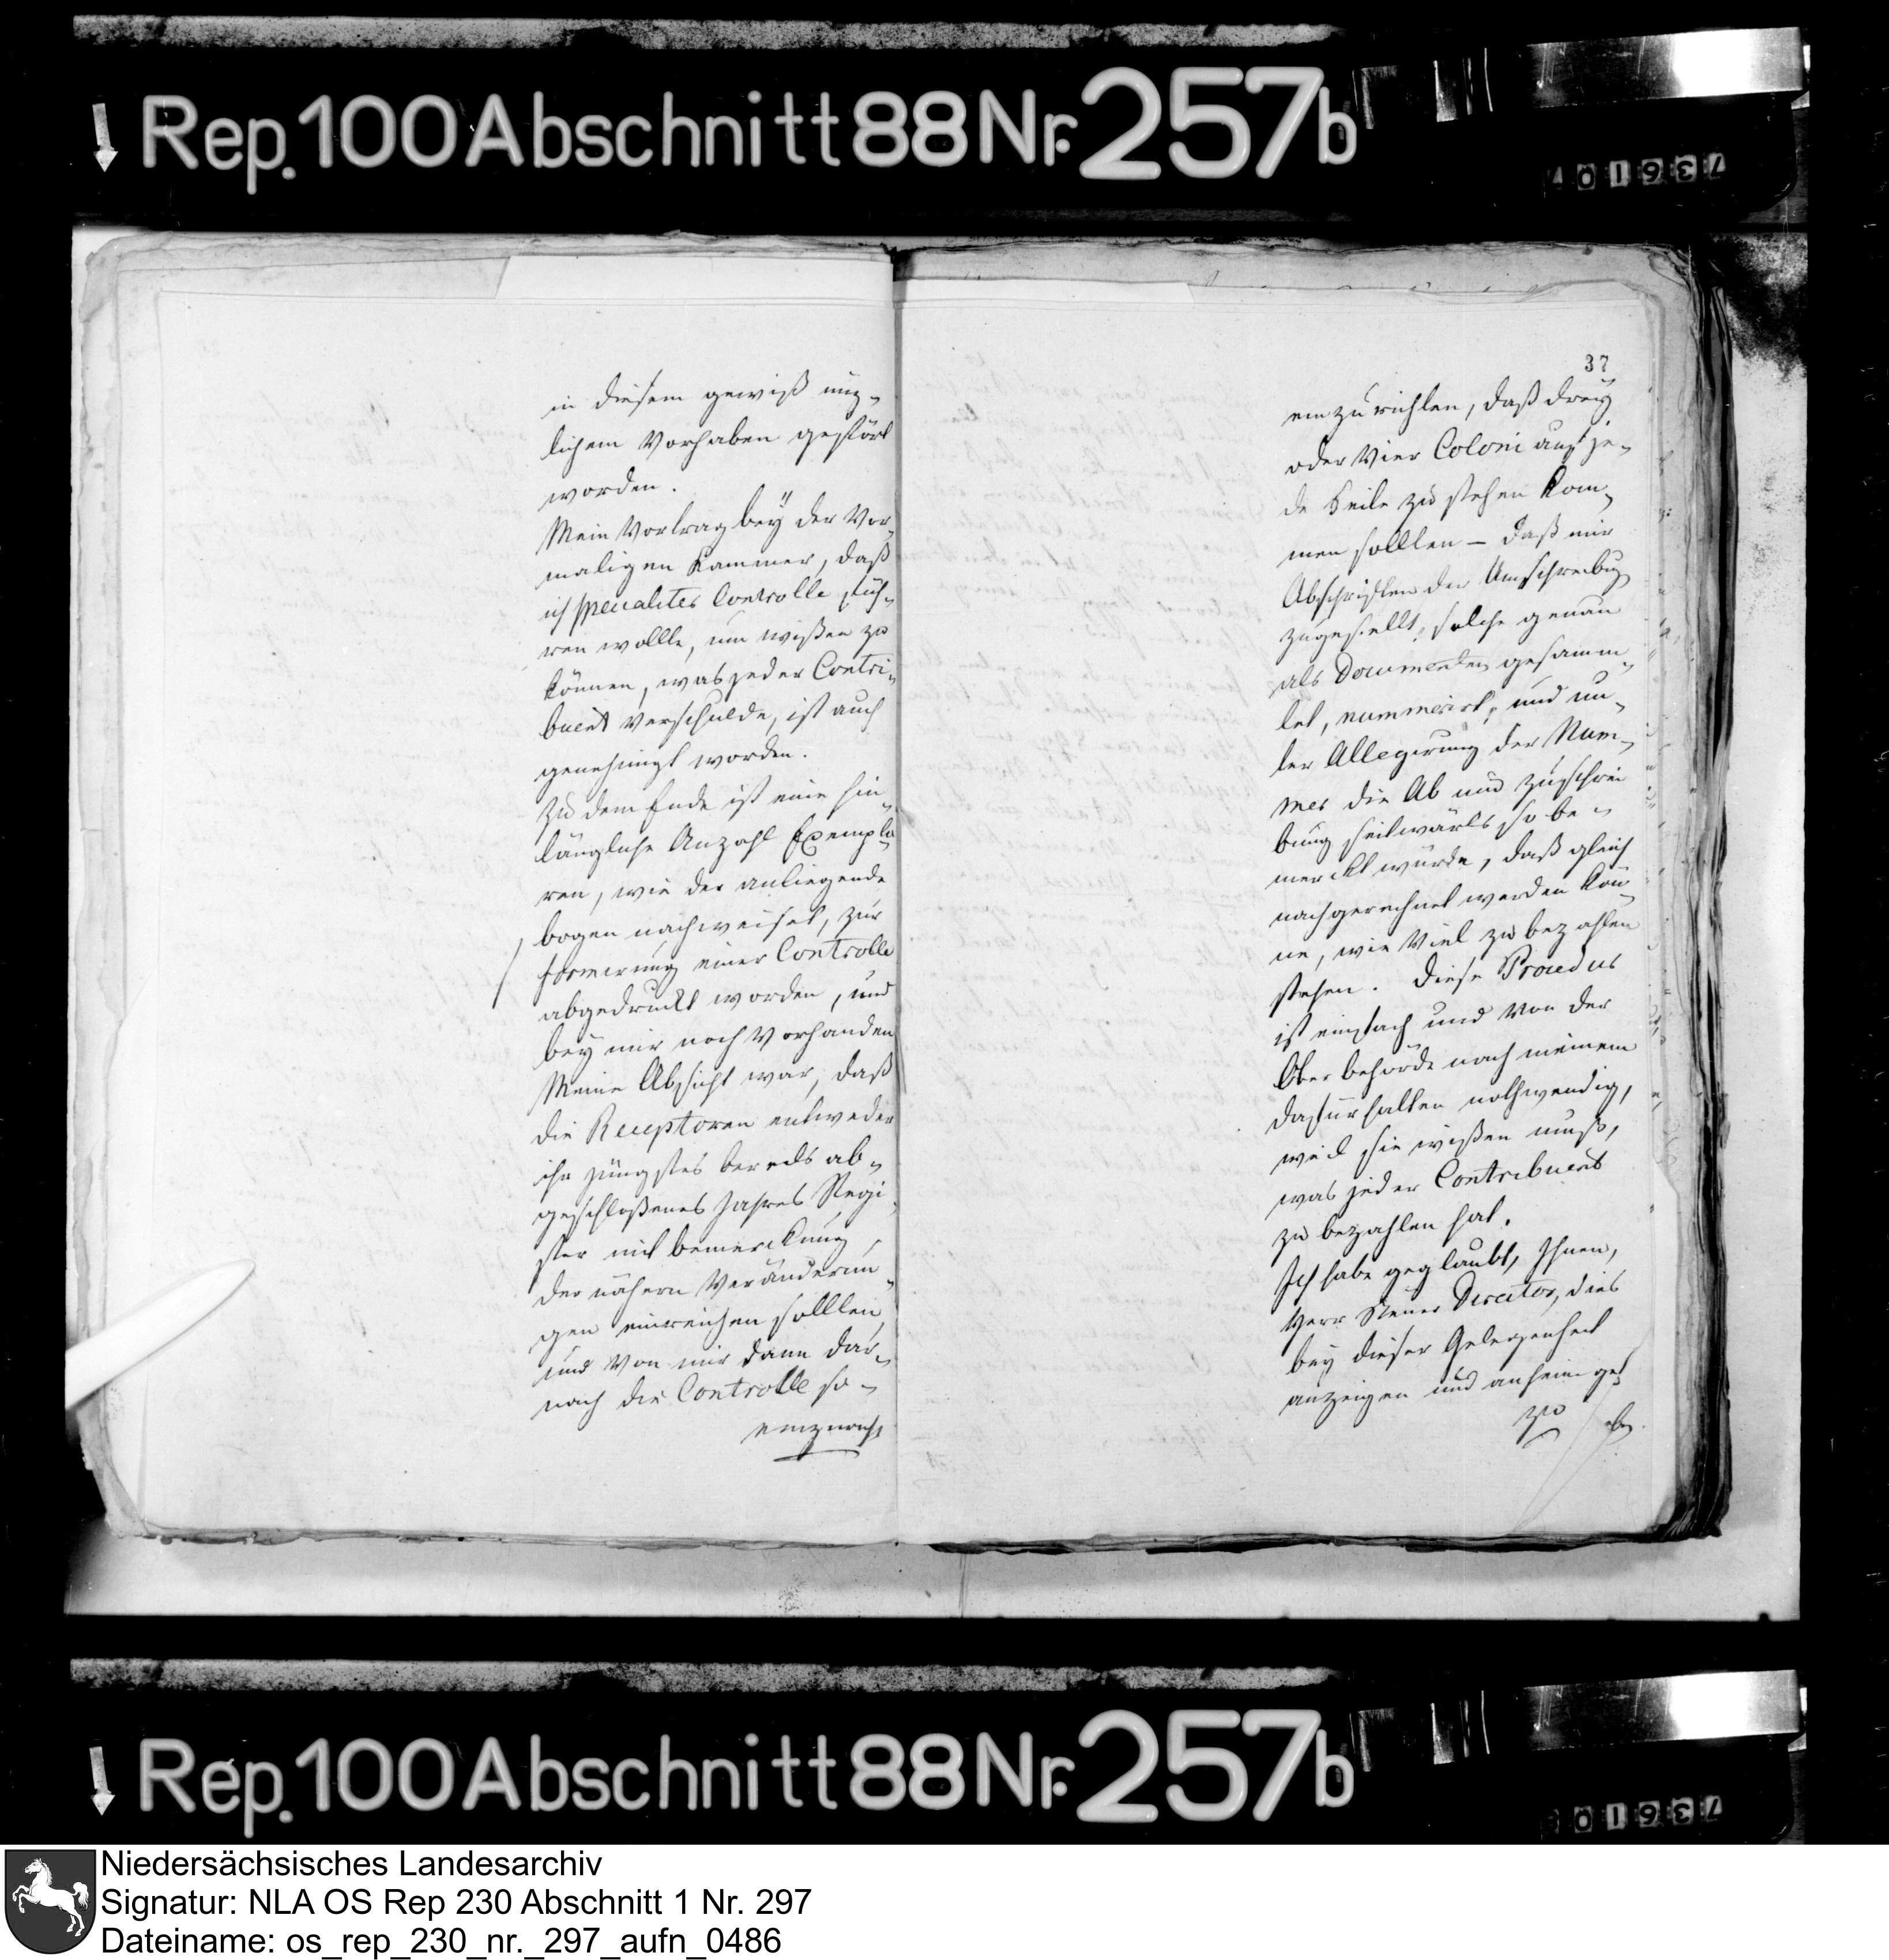 Rep. 100 Abschnitt 88 Nr. 257b
736107
in diesem gewiß nüz-
lichem Vorhaben gestört
worden.
Mein Vortrag bey der Vor-
maligen Kammer, daß
ich specialiter Controlle füh-
ren wollte, um wißen zu
können, was jeder Contri-
buent verschulde, ist auch
genehmigt worden.
Zu dem Ende ist eine hin-
längliche Anzahl Exempla-
ren, wie der anliegende
bogen nachweiset, zur
formirung einer Controlle
abgedruckt worden, und
bey mir noch Vorhanden
Meine Absicht war, daß
die Receptoren entweder
ihr jüngstes bereits ab-
geschloßenes Jahres Regi-
ster mit bemerckung
der nähern Veränderun-
gen einreichen sollten
und Von mir dann dar-
nach die Controlle so-
37
einzurichten, daß drey
oder Vier Coloni auf je-
de Seite zu stehen kom-
men sollten – daß mir
Abschriften der Umschreibug
zugestellt, solche genau
als Documenten gesamm-
let, nummerirt, und un-
ter Allegirung der Num-
mer die Ab und zuschrei
bung seitwärts so be-
merckt würde, daß gleich
nachgerechnet werden kön-
ne, wie Viel zu bezahlen
stehen. Diese Procedur
ist einfach und Von der
Ober behörde nach meinem
dafürhalten nothwendig,
weil sie wißen muß,
was jeder Contribuent
zu bezahlen hat.
Ich habe geglaubt, Ihnen,
Herr Steuer Director, dies
bey dieser Gelegenheit
anzeigen und anheim geb
zu
Rep. 100 Abschnitt 88 Nr. 257b
736101
Niedersächsisches Landesarchiv
Signatur: NLA OS Rep 230 Abschnitt 1 Nr. 297
Dateiname: os_rep_230_nr._297_aufn_0486